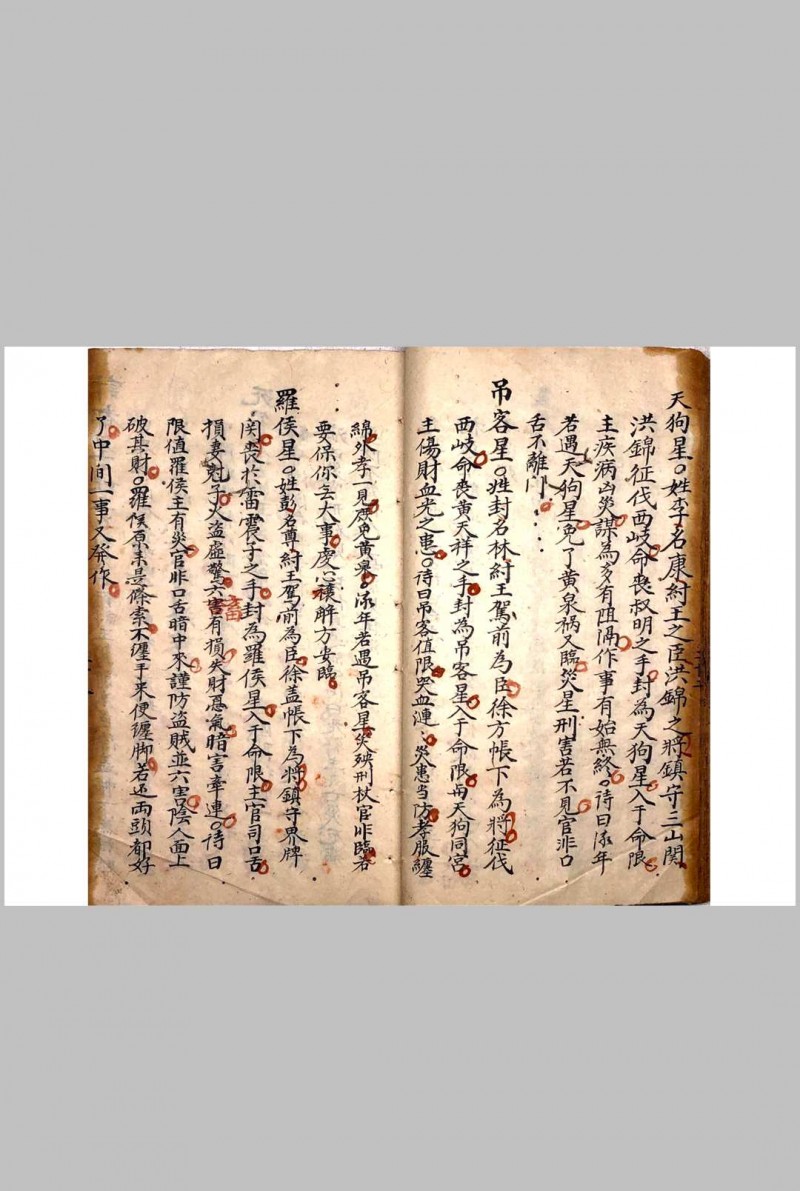 天狗星。姓李名康紂王之臣洪錦之將鎮守三山関
洪錦征伐西岐命喪叔明之手封為天狗星入于命限
主疾病凶災謀為多有阻滞作事有始無終。诗曰流年
若遇天狗星免了黄泉祸又臨災星刑害若不見官非口
舌不離门
吊客星。姓封名林紂王駕前為臣徐方帳下為將征伐
西岐命喪黄天祥之手封為吊客星入于命限與天狗同宫
主傷財血光之患。诗曰吊客值限哭血漣漣災患当防孝服纏
綿外孝一見庶免黄舉。流年若遇吊客星災殃刑杖官非臨若
要保你無大事虔心禳解方安臨
羅侯星。姓彭名尊紂王駕前為臣徐盖帳下為將鎮守界牌
関喪於雷震子之手封為羅侯星入于命限主官司口舌
損妻尅子火盗虚驚六畜有損失財惡氣暗害牵連。诗曰
限值羅侯主有災官非口舌暗中來謹防盗賊並六害陰人面上
破其財。羅侯原来是條索不纏手来便纏脚若还両頭都好
了中间一事又發作